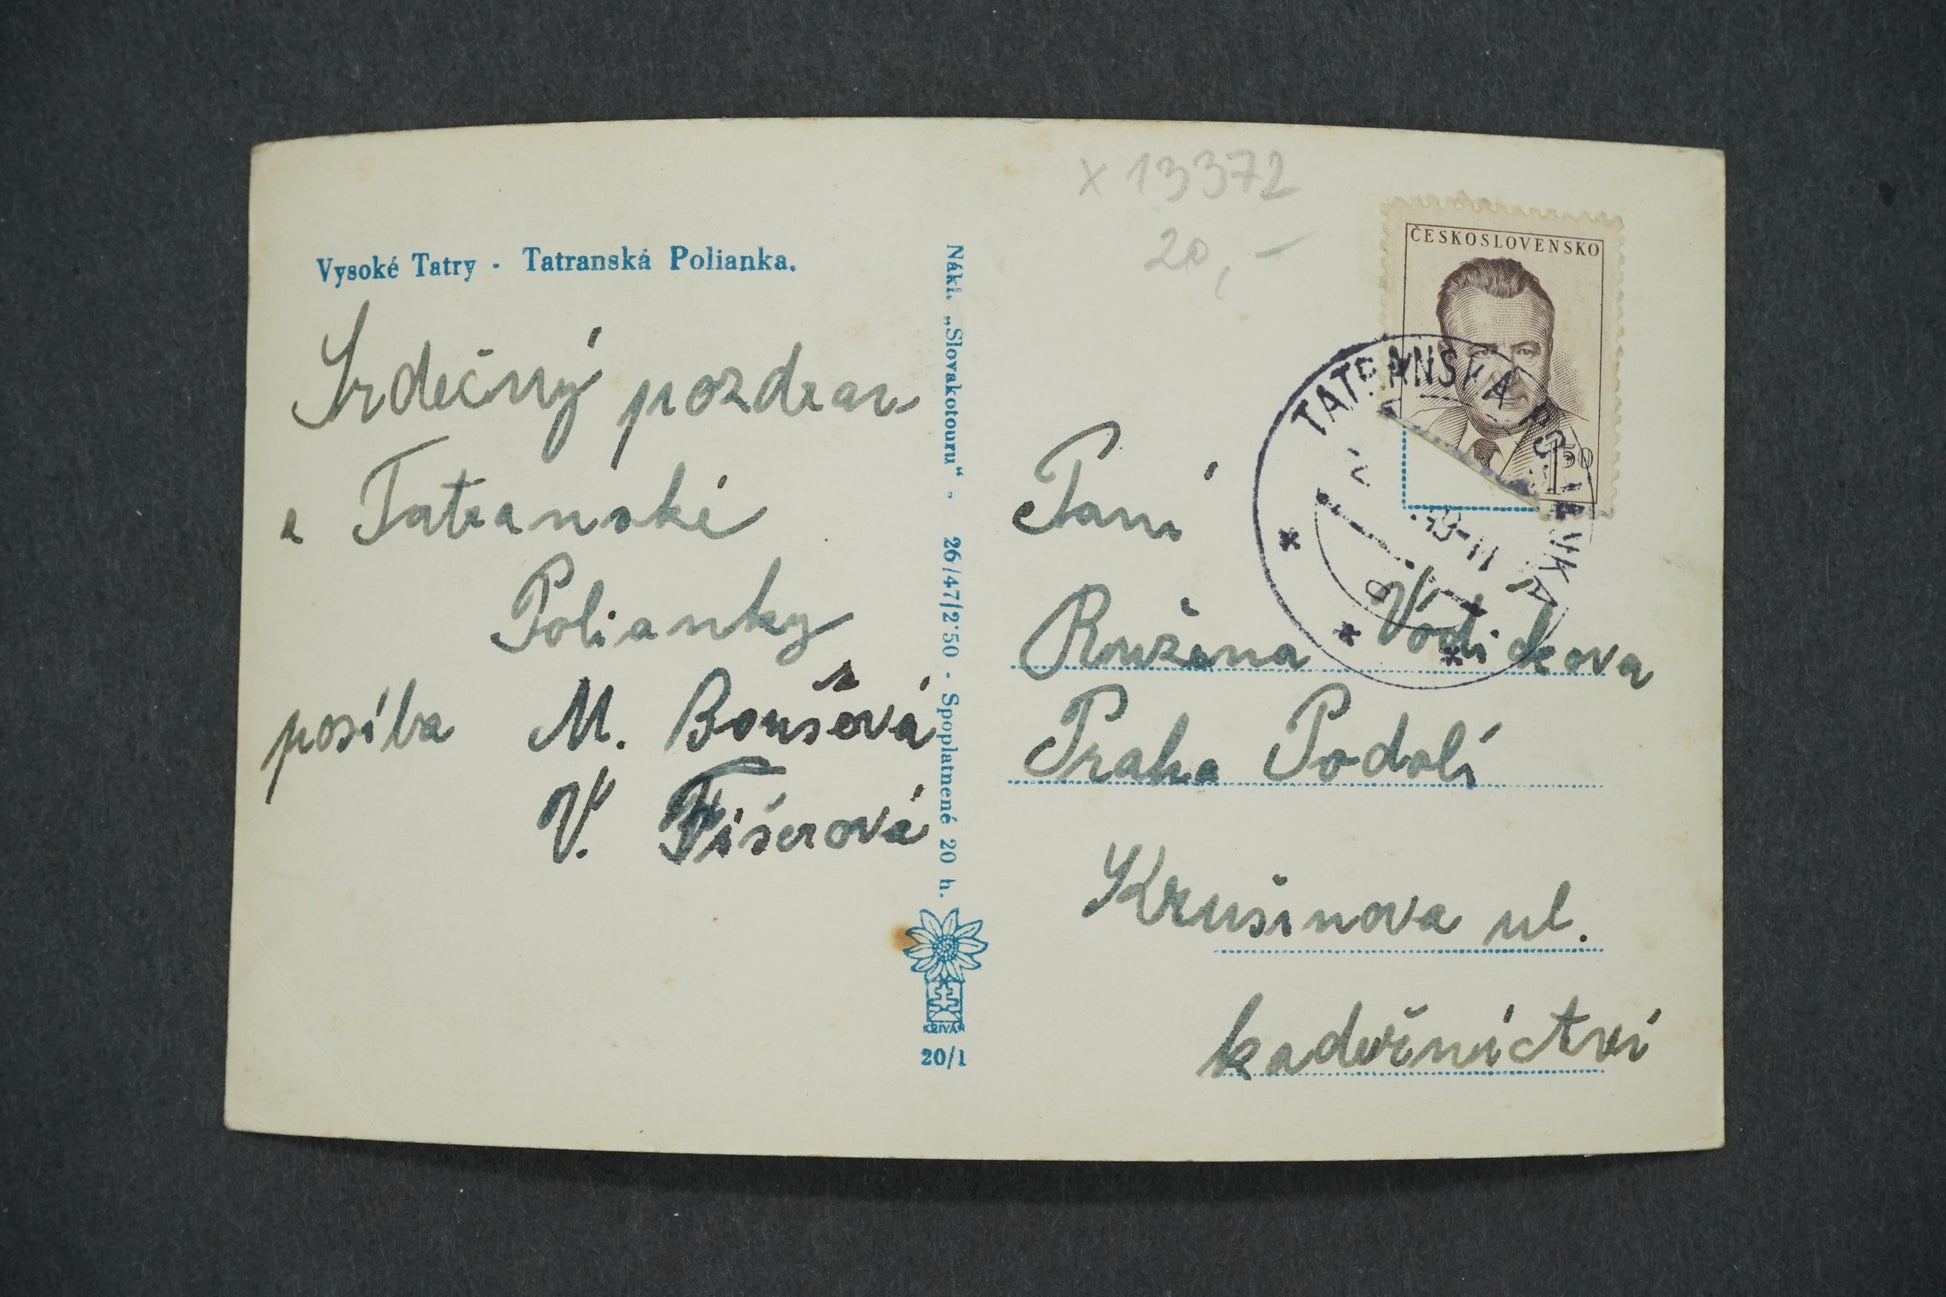 Vysoké Tatry - Tatranská Polianka.
Srdečný pozdrav
z Tatranské
Polianky
posílá M. Boušová
V. Fišerová
Nákl. „Slovakotouru“. 26/47/2˙50 - Spoplatnené 20 h.
KRIVÁŇ
20/1
x 13372
20,-
ČESKOSLOVENSKO
1 50
TATRANSKÁ POLIANKA
Paní
Ružena Vodičkova
Praha Podolí
Krušinova ul.
kadeřnictví